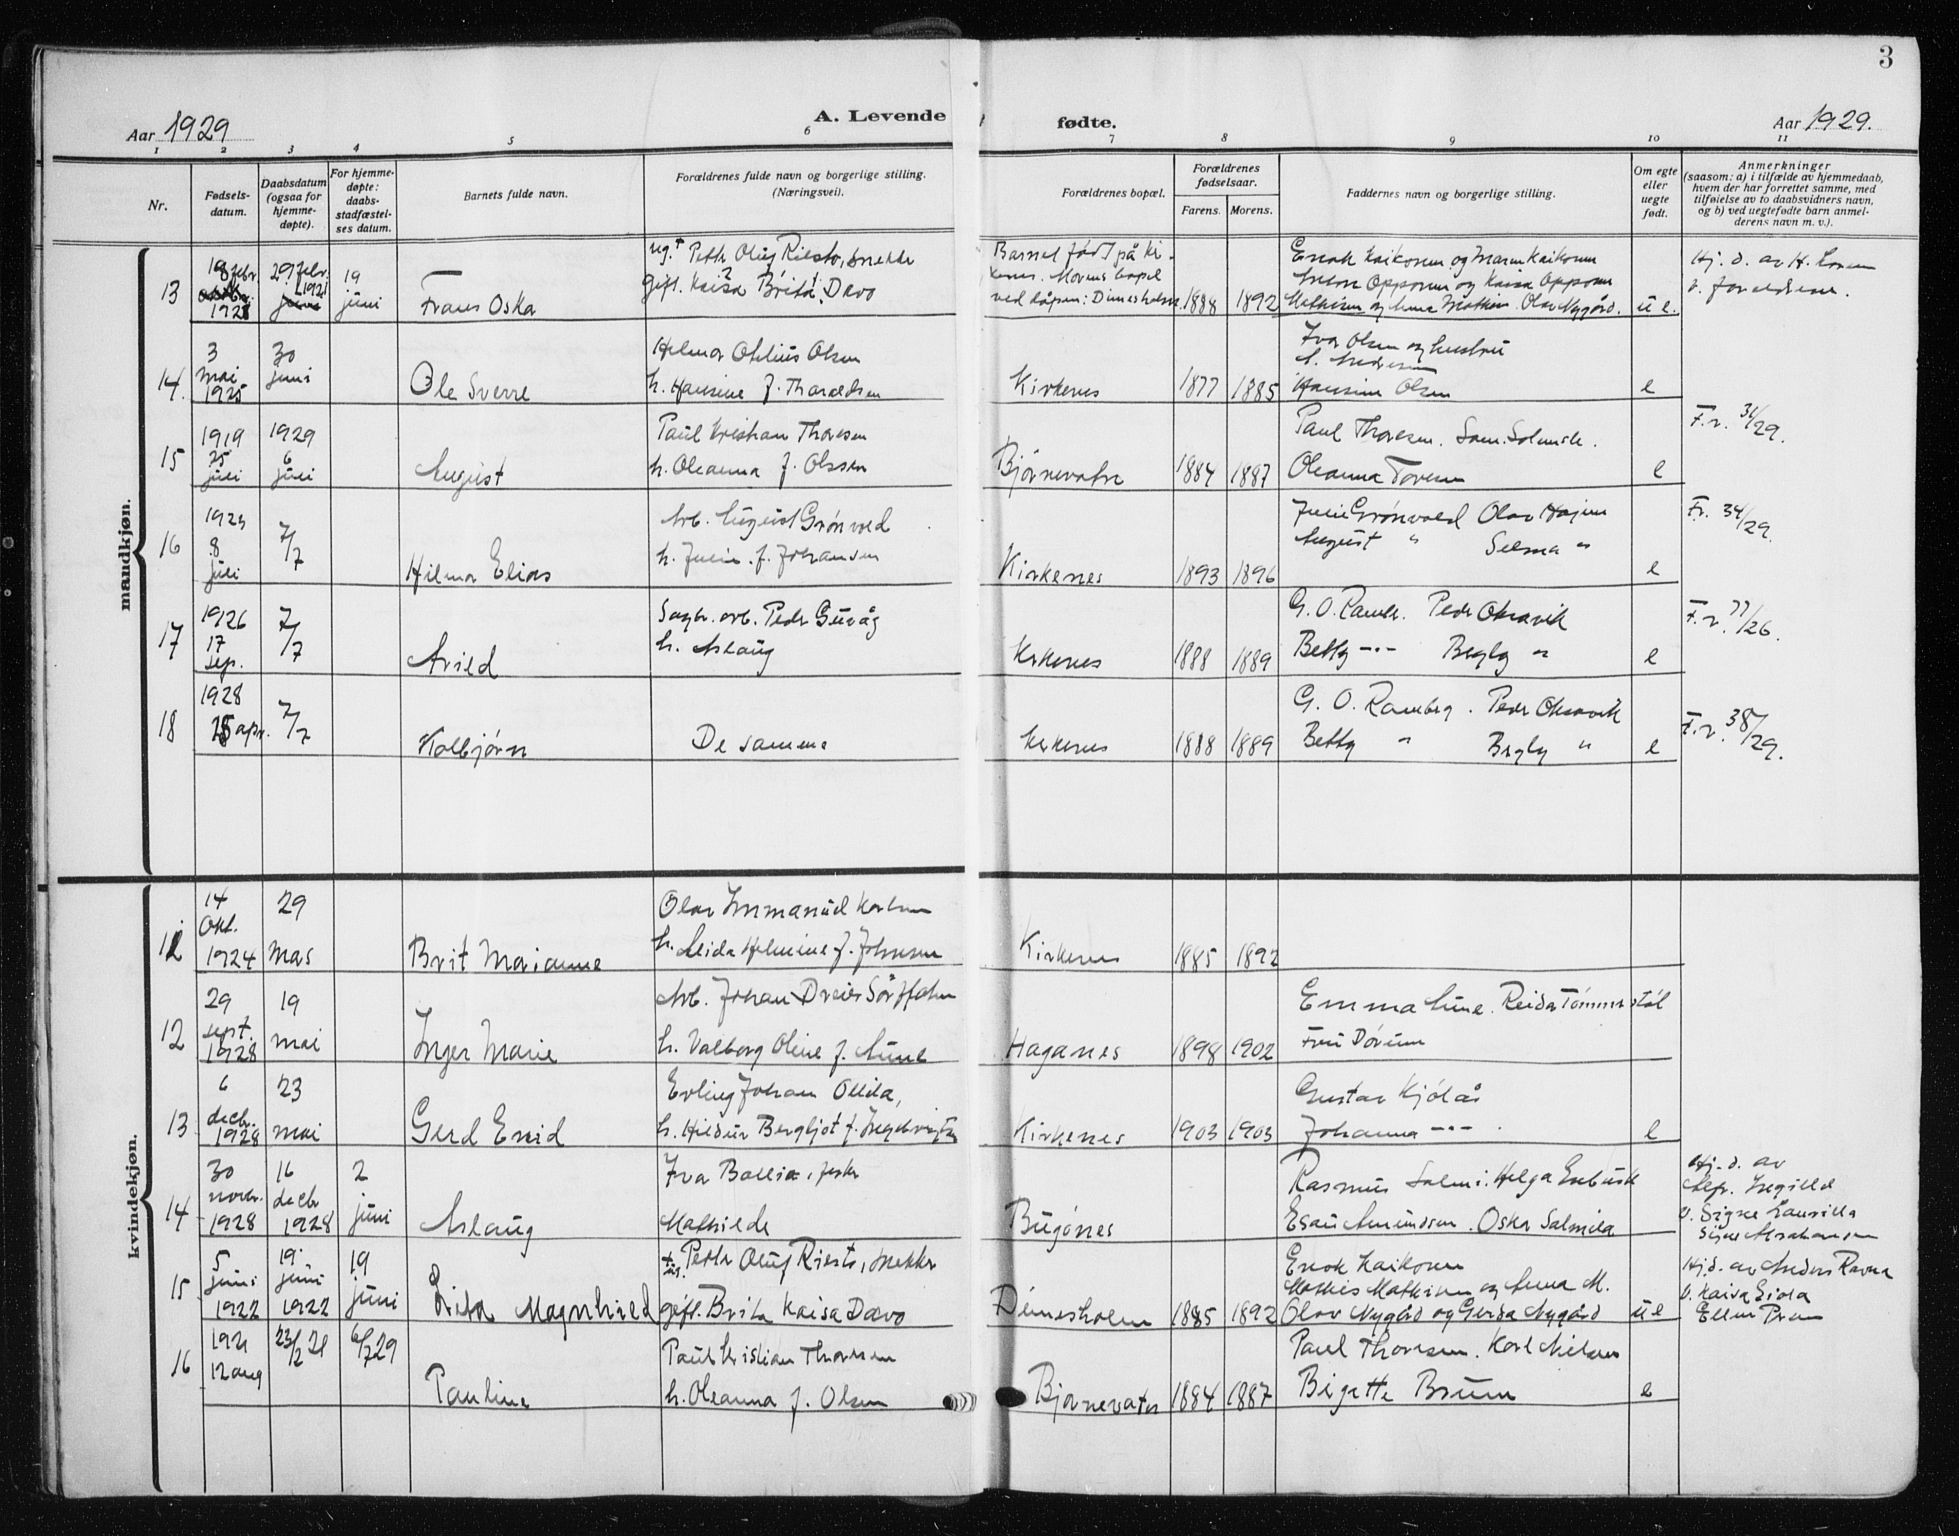 3
Aar 1929
A. Levende fødte.
Aar 1929.
1 2 3 4 5 6 7 8 9 10 11
Nr.
Fødsels-
datum.
Daabsdatum
(ogsaa for
hjemme-
døpte).
For hjemme-
døpte:
daabs-
stadfæstel-
ses datum.
Barnets fulde navn.
Forældrenes fulde navn og borgerlige stilling.
(Næringsvei).
Forældrenes bopæl.
Forældrenes
fødselsaar.
Farens. Morens.
Faddernes navn og borgerlige stilling.
Om egte
eller
uegte
født.
Anmerkninger
(saasom: a) i tilfælde av hjemmedaab,
hvem der har forrettet samme, med
tilføielse av to daabsvidners navn,
og b) ved uegtefødte barn anmel-
derens navn m. v.).
mandkjøn.
13
febr.
1921
29 febr.
1921
19
juni
Frans Oska
Petter Oluf Riesto, snekker
gift. Kaisa Brita Davo
Barnet født på Ki-
kenes. Morens bopel
ved dåpen: Dimesholm
1888 1892
Enok Kaikonen og Maren Kaikonen
Anton Opponen og Kaisa Opponen
Mathisen og Anna Mathisen. Olav Nygård.
u e.
Hj. d. av H.
v. foreldrene.
14.
3
mai
1925
30
juni
Ole Sverre
Helmer Othilius Olsen
h. Hansine f. Tharaldsen
Kirkenes
1877 1885
Ivar Olsen og hustru
Hansine Olsen
e
15
1919
25
juli
1929
6
juli
August
Paul Kristian Thoresen
h. Oleanna f. Olssen
Bjørnevatn
1884 1887
Paul Thoresen. Sam.
Oleanna Toresen
e
F.r. 31/29.
16
8
juli
7/7
Hilmar Elias
Arb. August Grønvold
h. Julie f. Johansen
Kirkenes
1893 1896
Julie Grønvold Olav Hagen
August " Selma "
e
Fr. 34/29.
17
1926
17
sep.
7/7
Arild
arb. Peder Guvåg
h. Aslaug
Kirkenes
1888 1889
G. O. Ramb. Peder Oksavik
Betty -"- Bergly "
e
F.r. 77/26.
18
1928
apr.
7/7
Kolbjørn
De samme
Kirkenes
1888 1889
G. O. Ramberg. Peder Oksavik
Betty " Bergly "
e
F.r. 38/29.
kvindekjøn.
14
Okt.
1924
29
mars
Brit Marianne
Olav Immanuel Karlsen
h. Alida Helmine f. Johnsen
Kirkenes
1885 1892
12
29
sept.
1928
19
mai
Inger Marie
Arb. Johan Dreier
h. Valborg Oline f. Aune
Haganes
1898 1902
Emma Aune. Reidar Tømmerstøl
Fru Dørum
13
6
decbr.
1928
23
mai
Gerd Enid
Erling Johan Ollila,
h. Hildur Bergljot f. Ingebrigtsen
Kirkenes
1903 1903
Gustav Kjølås
Johanna -"-.
e
14
30
novbr.
1928
16
decbr
1928
2
juni
Aslaug
Ivar Ballia, fisker
Mathilde
Bugønes
Rasmus Salmi. Helga Enbusk
Esau Amundsen. Oskar Salmila
Hj. d. av
Alfr. Ingilld
v. Signe Laurilla
Signe Abrahamsen
15
5
juni
1922
19
juni
1922
19
juni
Lida Magnhild
Petter Oluf Riesto, snekker
gift. Brita Kaisa Davo
Dimesholm
1885 1892
Enok Kaikonen
Mathis Mathisen og Anna M.
Olav Nygård og Gerda Nygård
u e
Hj.d. av Anders Ravna
v. Kaisa Siola
Ellen Pram
16
1921
12 aug
23/2 21
6/7 29
Pauline
Paul Kristian Thoresen
h. Oleanna f. Olsen
Bjørnevatn
1884 1887
Paul Thoresen. Karl Nielsen
Birgitte Bruun
e